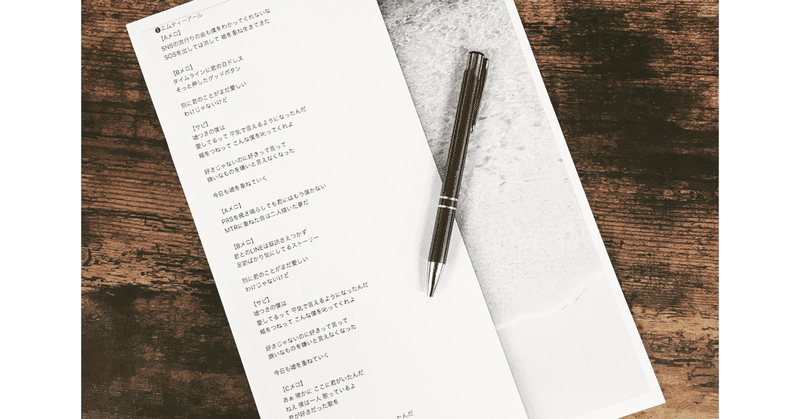 ❶エムティーアール
【Aメロ】
SNSの流行りの曲も僕をわかってくれないな
SOSを出しては消して 嘘を重ね生きてきた
【Bメロ】
タイムラインに君の白ドレス
そっと押したグッドボタン
別に君のことがまだ愛しい
わけじゃないけど
【サビ】
嘘つきの僕は
愛してるって 平気で言えるようになったんだ
頬をつねって こんな僕を叱ってくれよ
好きじゃないのに好きって言って
嫌いなものを嫌いと言えなくなった
今日も嘘を重ねていく
【Aメロ】
PRSを掻き鳴らしても君にはもう届かない
MTRに重ねた音は二人描いた夢だ
【Bメロ】
君とのLINEは既読さえつかず
足跡ばかり気にしてるストーリー
別に君のことがまだ愛しい
わけじゃないけど
【サビ】
嘘つきの僕は
愛してるって 平気で言えるようになったんだ
頬をつねって こんな僕を叱ってくれよ
好きじゃないのに好きって言って
嫌いなものを嫌いと言えなくなった
今日も嘘を重ねていく
【Cメロ】
あぁ 確かに ここに君がいたんだ
ねぇ 僕は一人 歌っているよ
君が好きだった歌を